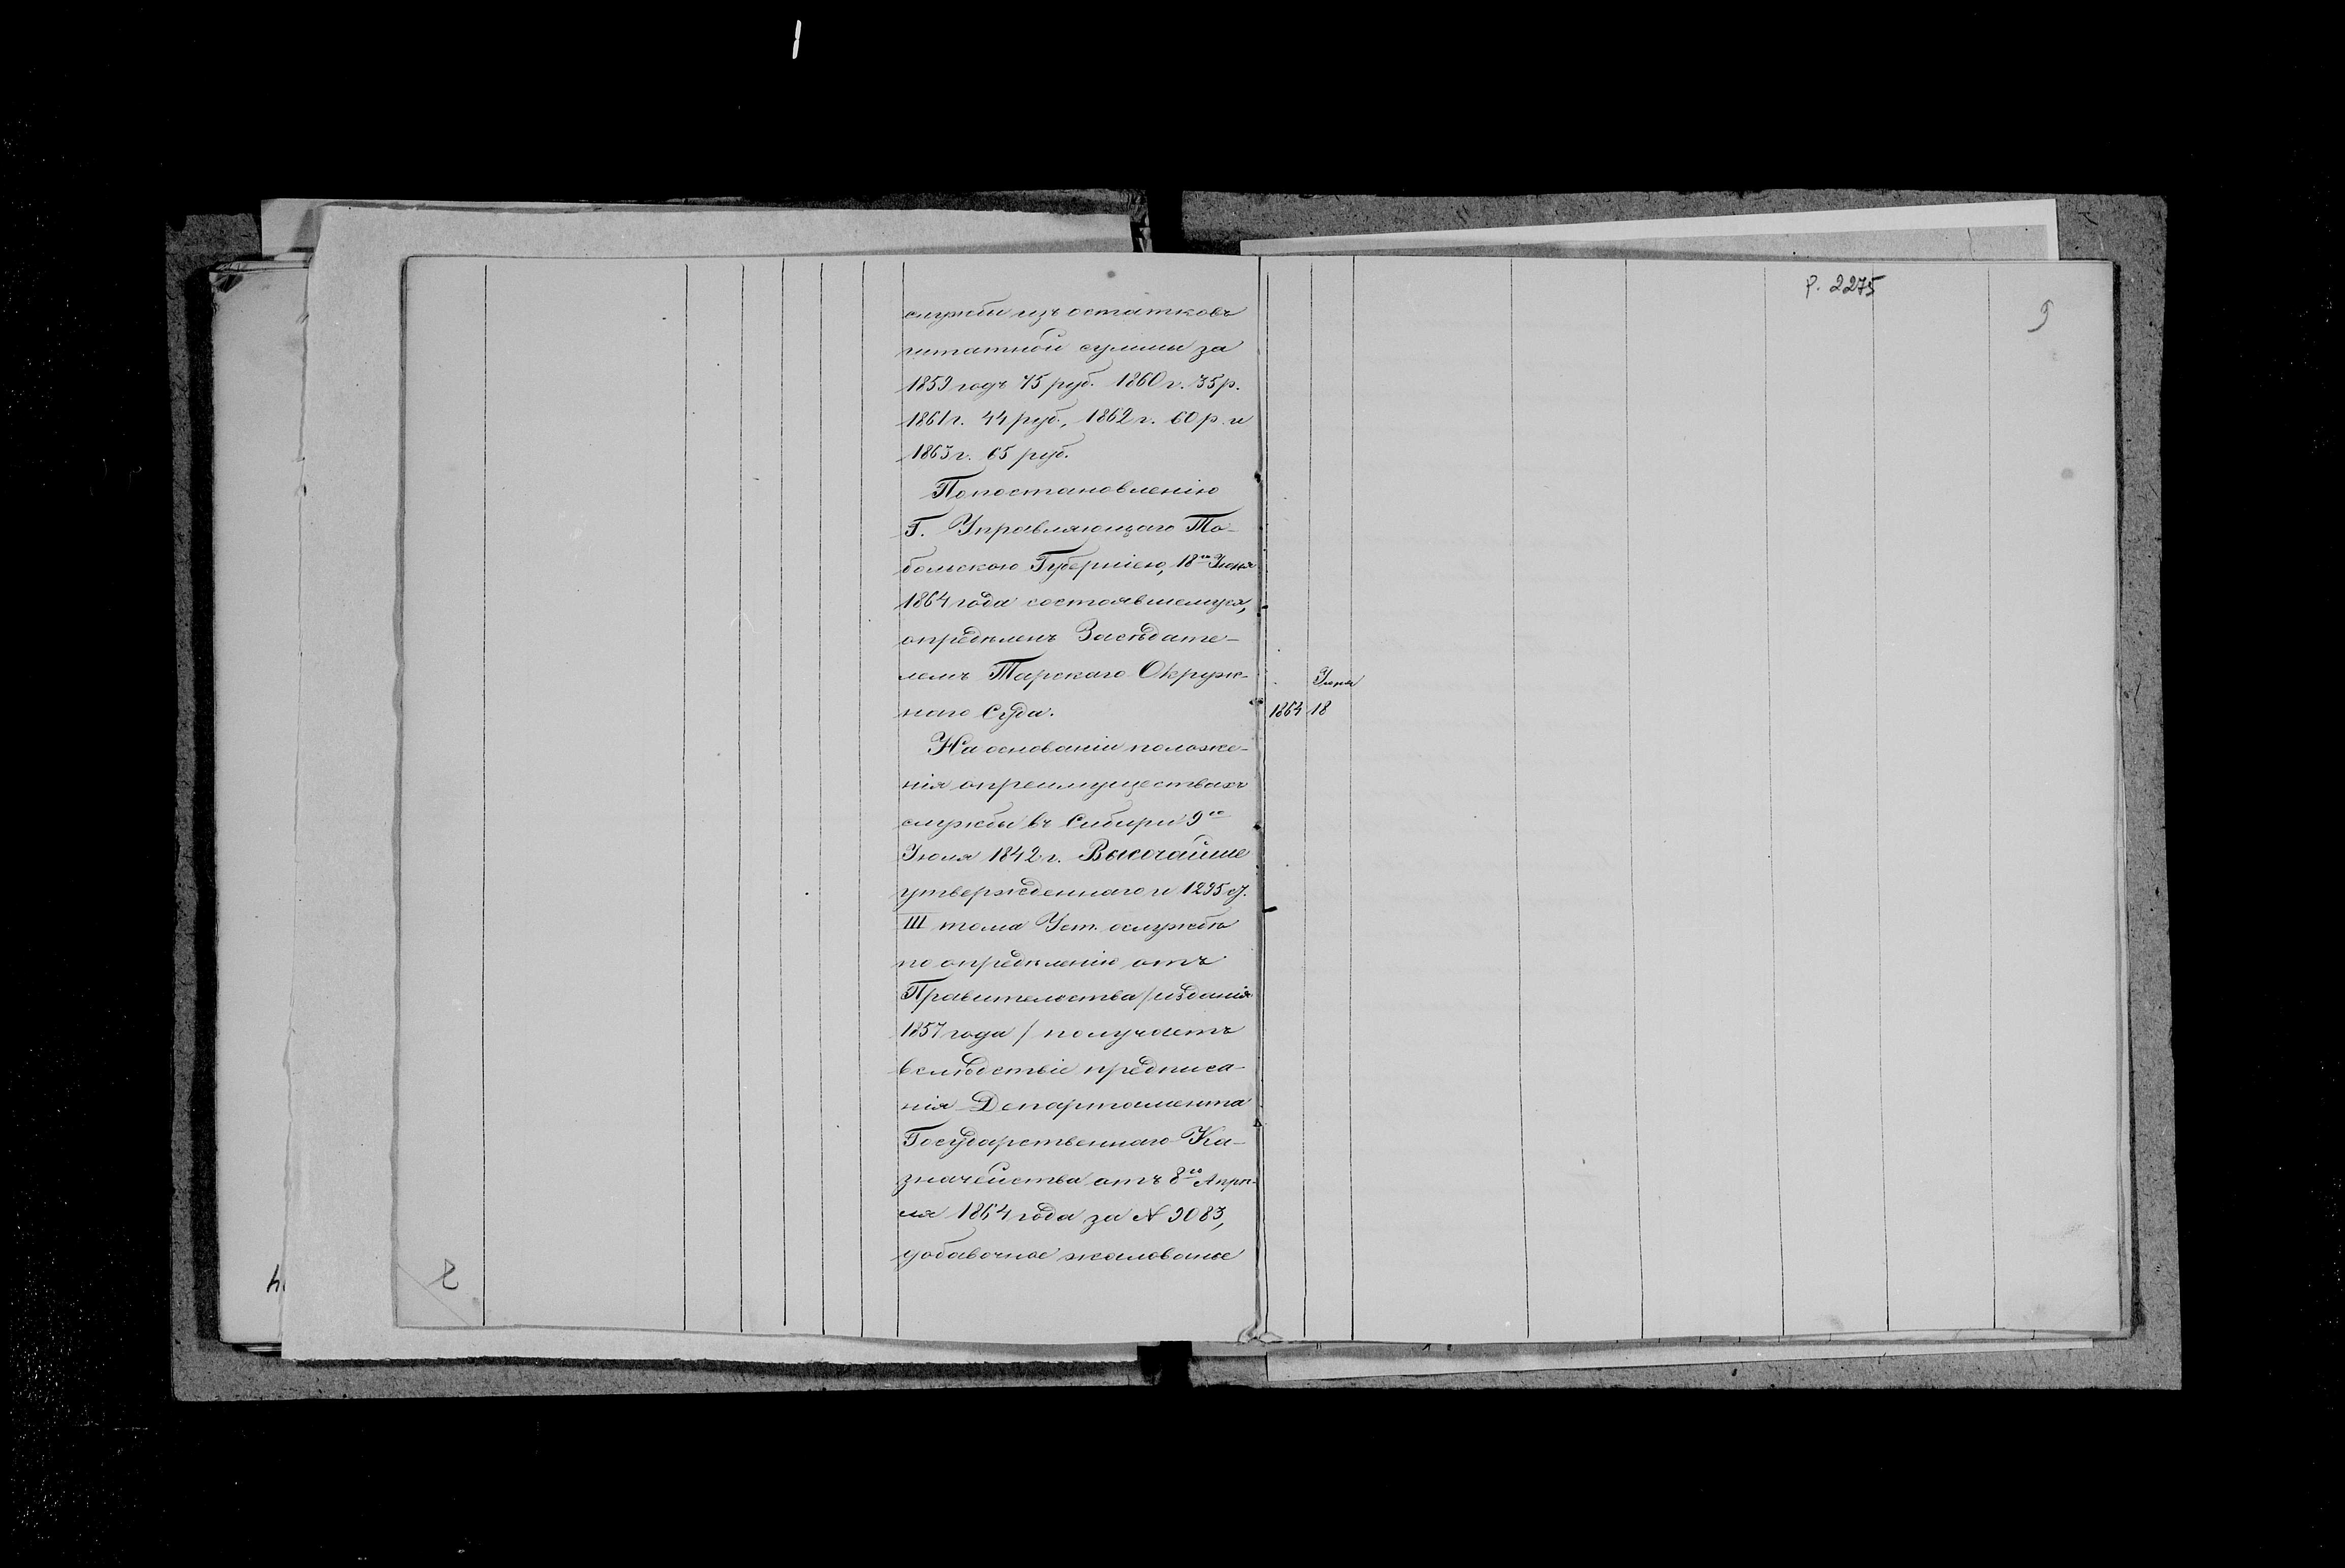 службы изъ остатковъ
штатной суммы за
1859 годъ 75 руб. 1860 г. 35 р.
1861 г. 44 руб., 1862 г. 60 р. и
1863 г. 65 руб.
Попостановленію
Г. Управляющаго То-
больскою Губерніею, 18го Іюня
1864 года состоявшемуся,
опредѣленъ Засѣдате-
лемъ Тарскаго Окруж-
наго Суда.
Іюня
1864 18
На основаніи положе-
нія опреимуществахъ
службы въ Сибири 9го
Іюля 1842 г. Высочайше
утвержденнаго и 1295 ст.
III тома Уст. ослужбѣ
по опредѣленію отъ
Правительства /изданія
1857 года / получаетъ
вслѣдствіе предписа-
нія Департамента
Государственнаго Ка-
значейства отъ 8го Апрѣ-
ля 1864 года за № 9083,
добавочное жалованье
р. 2275
9